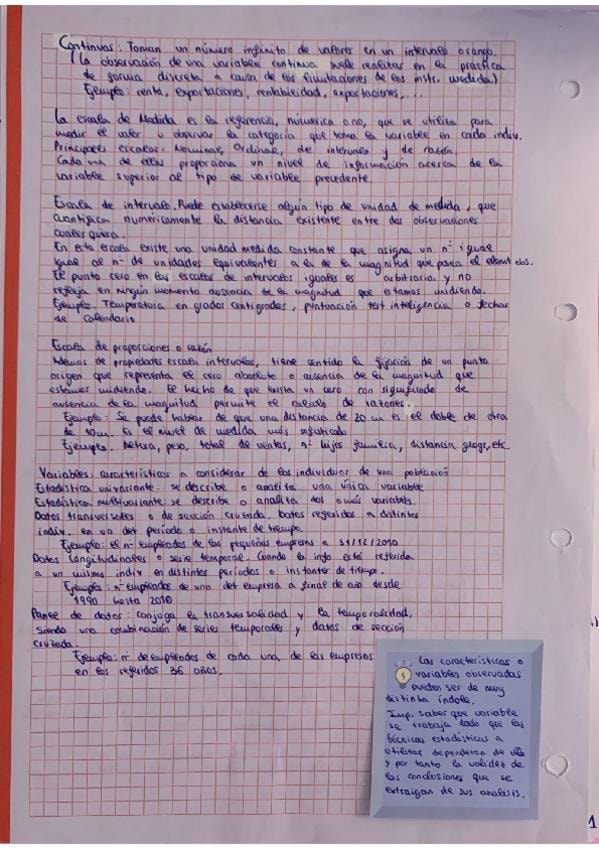 Continuas: Toman un número infinito de valores en un intervalo o rango.
(La observación de una variable continua suele realizar en la práctica
de forma discreta a causa de las limitaciones de los instr. medida)
Ejemplo: renta, exportaciones, rentabilidad, exportaciones,...
La escala de Medida es la referencia, númerica o no, que se utiliza para
medir el valor u observar la categoría que toma la variable en cada indiv.
Principales escalas: Nominal, Ordinal, de intervalo y de razón.
Cada una de ellas proporciona un nivel de información acerca de la
variable superior al tipo de variable precedente.
Escala de intervalo. Puede establecerse algún tipo de unidad de medida, que
cuantifica numéricamente la distancia existente entre dos observaciones
cualesquiera.
En esta escala existe una unidad medida constante que asigna un nº igual
igual al nº de unidades equivalentes a la de la magnitud que posea el
El punto cero en las escalas de intervalos iguales es arbitraria, y no
refleja en ningún momento ausencia de la magnitud que estamos midiendo.
Ejemplo. Temperatura en grados centigrados, puntuación test inteligencia o fechas
de calendario
Escala de proporciones o razón
Además de propiedades escala intervalos, tiene sentido la fijación de un punto
origen que representa el cero absoluto o ausencia de la magnitud que
estamos midiendo. El hecho de que exista un cero con significado de
ausencia de la magnitud permite el calculo de razones.
Ejemplo: Se puede hablar de que una distancia de 20 m es el doble de otra
de 10m. Es el nivel de medida más sofisticado
Ejemplos. Altura, peso, total de ventas, nº hijos familia, distancia geogr, etc.
Variables: características a considerar de los individuos de una población
Estadística univariante: se describe o analiza una única variable
Estadística multivariante: se describe o analiza dos o más variables.
Datos transversales o de sección cruzada. Datos referidos a distintos
indiv. en un det período o instante de tiempo.
Ejemplo: el nº empleados de las pequeñas empresas a 31/12/2010
Datos Longitudinales o serie temporal. Cuando la info está referida
a un mismo indiv en distintos períodos o instantes de tiempo.
Ejemplo: nº empleados de una det empresa a final de año desde
1990 hasta 2010
Panel de datos: conjuga la transversalidad y la temporalidad,
siendo una combinación de series temporales y datos de sección
cruzada.
Ejemplo: nº de empleados de cada una de las empresas
en los referidos 36 años.
Las características o
variables observadas
pueden ser de muy
distinta índole.
Imp. saber que variable
se trabaja dado que las
técnicas estadísticas a
utilizar dependeran de ella
y por tanto la validez de
las conclusiones que se
extraigan de sus analisis.
1